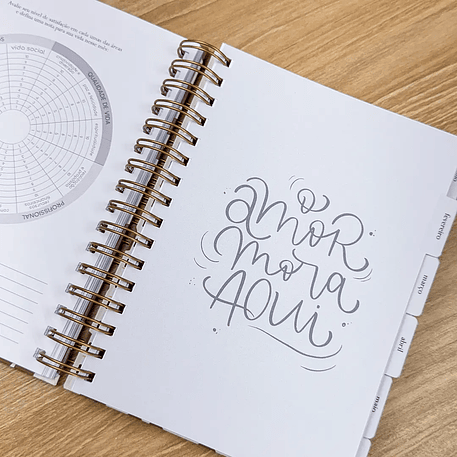 Avalie seu nível de satisfação em cada uma das áreas
e defina uma nota para sua vida nesse mês.
vida social
QUALIDADE DE VIDA
PROFISSIONAL
O
AMOR
mora
AQUI
fevereiro
março
abril
maio